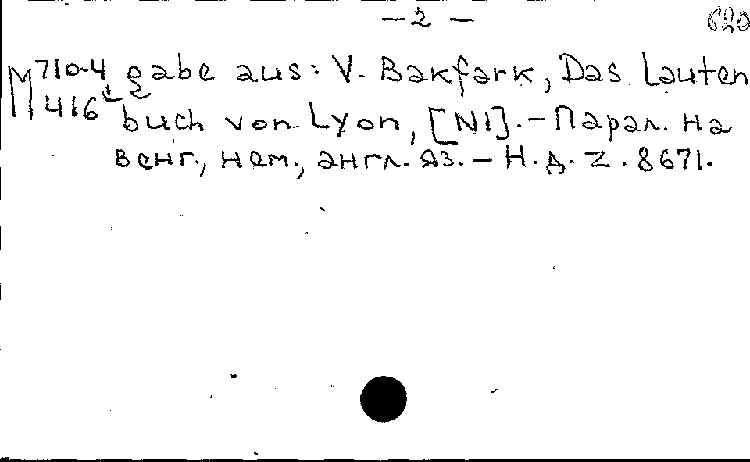 — 2 — 620
М 710-4 gabe aus: V. Bakfark, Das Lauten
416 buch von Lyon, [N1]. – Парал. на
венг., нем., англ. яз. – Н. д. Z. 8671.